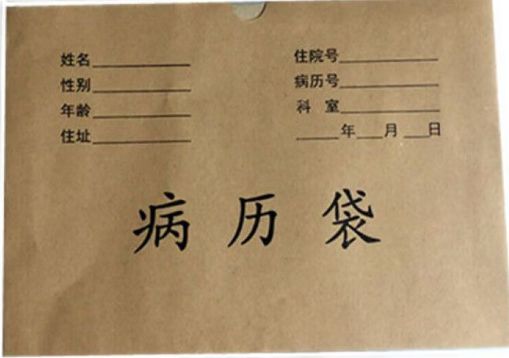 姓名__________ 住院号__________
性别__________ 病历号__________
年龄__________ 科 室__________
住址__________ ____年___月___日
病历袋